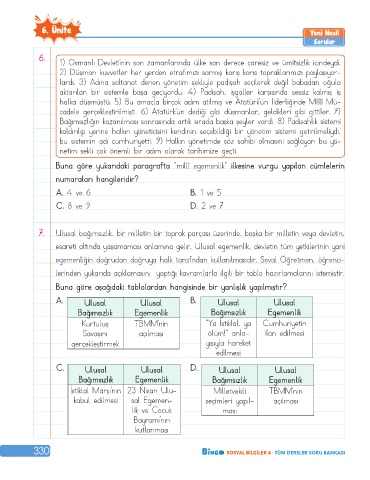 6. Ünite
Yeni Nesil
Sorular
6.
1) Osmanlı Devleti'nin son zamanlarında ülke son derece çaresiz ve ümitsizlik içindeydi.
2) Düşman kuvvetler her yerden etrafımızı sarmış karış karış topraklarımızı paylaşıyor-
lardı. 3) Adına saltanat denen yönetim şekliyle padişah seçilerek değil babadan oğula
aktarılan bir sistemle başa geçiyordu. 4) Padişah, işgaller karşısında sessiz kalmış iş
halka düşmüştü. 5) Bu amaçla birçok adım atılmış ve Atatürk'ün liderliğinde Millî Mü-
cadele gerçekleştirilmişti. 6) Atatürk'ün dediği gibi düşmanlar, geldikleri gibi gittiler. 7)
Bağımsızlığın kazanılması sonrasında artık sırada başka şeyler vardı. 8) Padişahlık sistemi
kaldırılıp yerine halkın yöneticisini kendinin seçebildiği bir yönetim sistemi getirilmeliydi,
bu sistemin adı cumhuriyetti. 9) Halkın yönetimde söz sahibi olmasını sağlayan bu yö-
netim şekli çok önemli bir adım olarak tarihimize geçti.
Buna göre yukarıdaki paragrafta "millî egemenlik" ilkesine vurgu yapılan cümlelerin
numaraları hangileridir?
A. 4 ve 6 B. 1 ve 5
C. 8 ve 9 D. 2 ve 7
7. Ulusal bağımsızlık, bir milletin bir toprak parçası üzerinde, başka bir milletin veya devletin,
esareti altında yaşamaması anlamına gelir. Ulusal egemenlik, devletin tüm yetkilerinin yani
egemenliğin doğrudan doğruya halk tarafından kullanılmasıdır. Seval Öğretmen, öğrenci-
lerinden yukarıda açıklamasını yaptığı kavramlarla ilgili bir tablo hazırlamalarını istemiştir.
Buna göre aşağıdaki tablolardan hangisinde bir yanlışlık yapılmıştır?
A. Ulusal Ulusal B. Ulusal Ulusal
Bağımsızlık Egemenlik Bağımsızlık Egemenlik
Kurtuluş TBMM'nin "Ya İstiklal, ya Cumhuriyetin
Savaşını açılması ölüm!" anla- ilan edilmesi
gerçekleştirmek yışıyla hareket
edilmesi
C. Ulusal Ulusal D. Ulusal Ulusal
Bağımsızlık Egemenlik Bağımsızlık Egemenlik
İstiklal Marşı'nın 23 Nisan Ulu- Milletvekili TBMM'nin
kabul edilmesi sal Egemen- seçimleri yapıl- açılması
lik ve Çocuk ması
Bayramı'nın
kutlanması
330
BİNGO SOSYAL BİLGİLER 4 - TÜM DERSLER SORU BANKASI